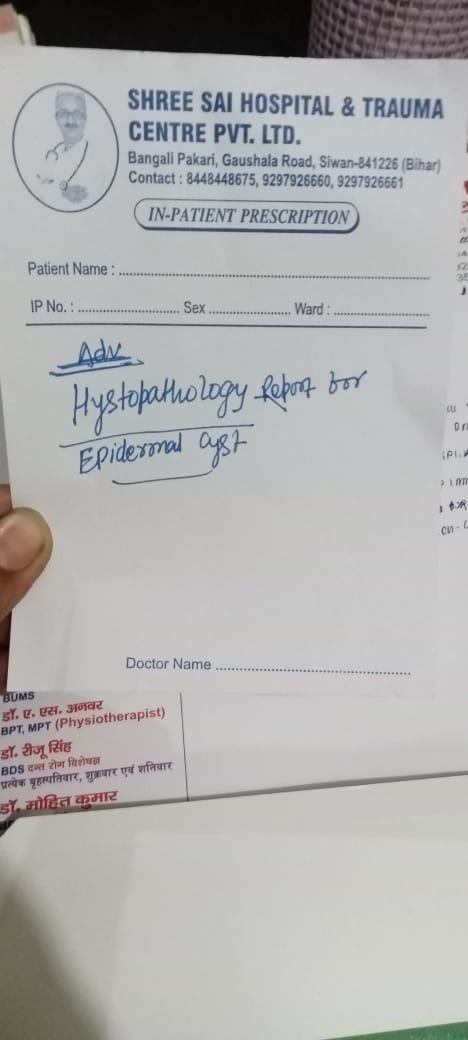 SHREE SAI HOSPITAL & TRAUMA
CENTRE PVT. LTD.
Bangali Pakari, Gaushala Road, Siwan-841226 (Bihar)
Contact : 8448448675, 9297926660, 9297926661
IN-PATIENT PRESCRIPTION
Patient Name :
IP No. : Sex Ward :
Adv.
Hystopathology Report for
Epidermal Cyst
Doctor Name
BUMS
डॉ. ए. एस. अनवर
BPT, MPT (Physiotherapist)
डॉ. रीजू सिंह
BDS दन्त रोग विशेषज्ञ
प्रत्येक बृहस्पतिवार, शुक्रवार एवं शनिवार
डॉ. मोहित कुमार